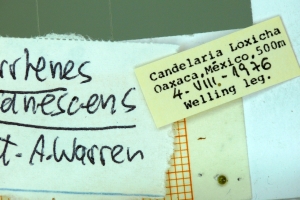 rrhenes
anescens
t. A. Warren
Candelaria Loxicha
Oaxaca, México, 500m
4-VIII-1976
Welling leg.